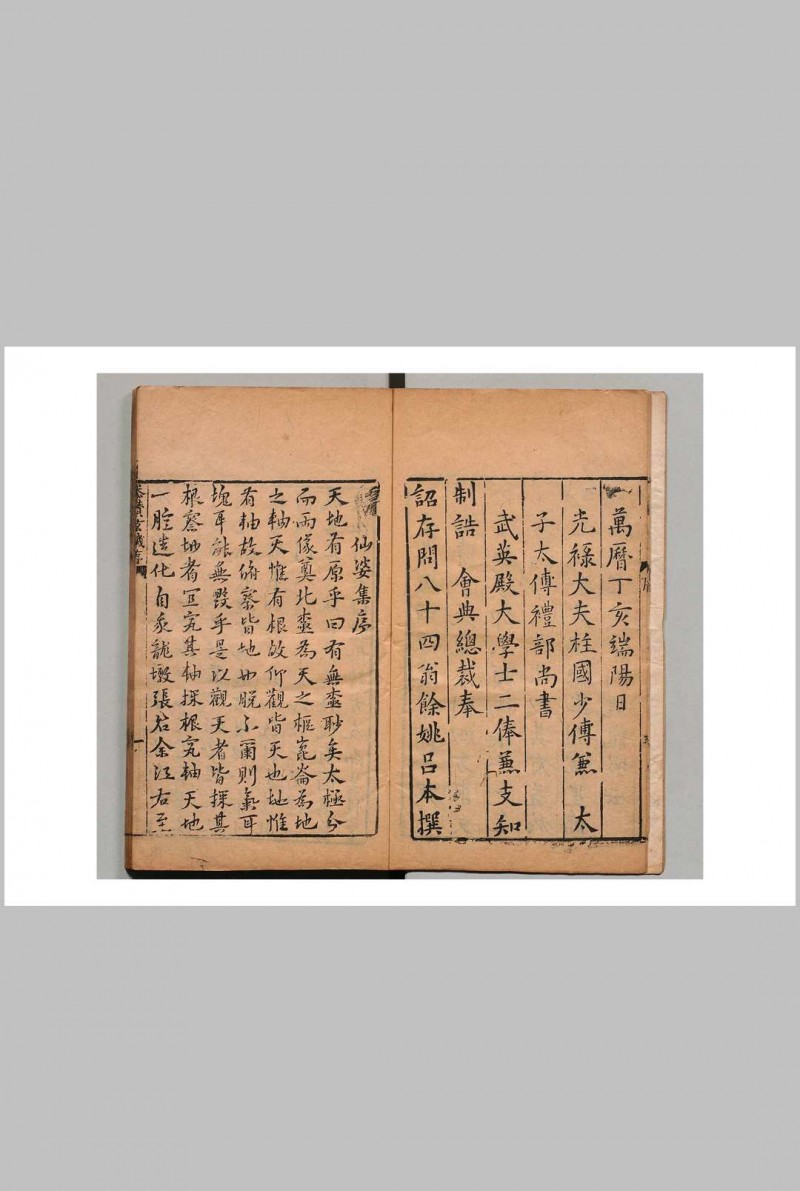 萬曆丁亥端陽日
光祿大夫柱國少傅兼　太
子太傅禮部尚書
武英殿大學士二俸兼支知
制誥　會典總裁奉
詔存問八十四翁餘姚呂本撰
仙婆集序
天地有原乎曰有無壺眇矣太極分
而兩儀奠北壺為天之樞崑崙為地
之軸天惟有根故仰觀皆天也地惟
有軸故俯察皆地也脫不爾則氣耳
塊耳能無毀乎是以觀天者皆探其
根察地者宜究其軸探根究軸天地
一腔造化自象龍墩張君余江右至